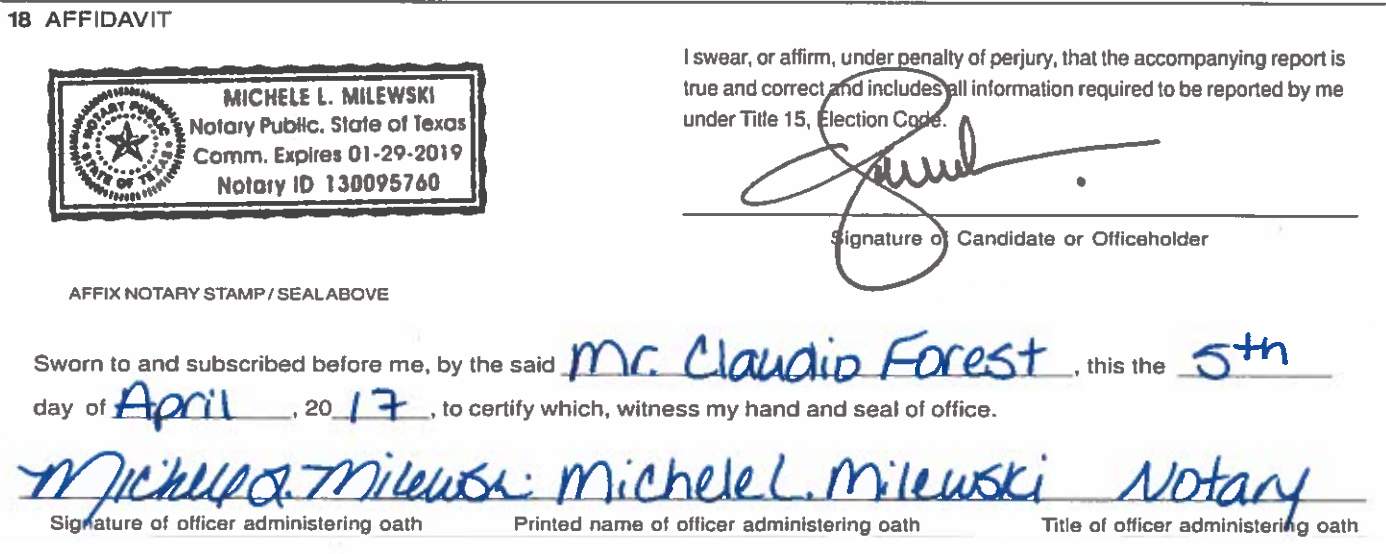 18 AFFIDAVIT
MICHELE L. MILEWSKI
Notary Public. State of Texas
Comm. Expires 01-29-2019
Notary ID 130095760
NOTARY PUBLIC
STATE OF TEXAS
I swear, or affirm, under penalty of perjury, that the accompanying report is
true and correct and includes all information required to be reported by me
under Title 15, Election Code.
Signature of Candidate or Officeholder
AFFIX NOTARY STAMP / SEAL ABOVE
Sworn to and subscribed before me, by the said Mr. Claudio Forest, this the 5th
day of April, 20 17, to certify which, witness my hand and seal of office.
Michele L. Milewski Michele L. Milewski Notary
Signature of officer administering oath Printed name of officer administering oath Title of officer administering oath